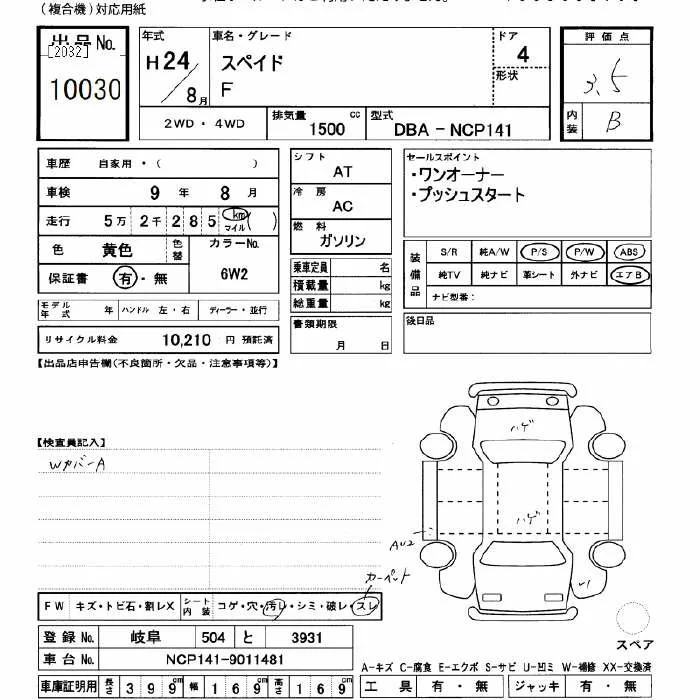 (複合機)対応用紙
出品No.
[2032]
10030
年式
H24/8月
車名・グレード
スペイド
F
ドア
4
形状
評価点
3.5
内装
B
2WD・4WD
排気量
1500 cc
型式
DBA-NCP141
車歴 自家用・( )
車検 9年 8月
走行 5万2千285 km マイル( )
色 黄色 色替
カラーNo.
6W2
保証書 有・無
モデル年式 年 ハンドル 左・右 ディーラー・並行
リサイクル料金 10,210 円 預託済
シフト
AT
冷房
AC
燃料
ガソリン
乗車定員 名
積載量 kg
総重量 kg
書類期限
月 日
セールスポイント
・ワンオーナー
・プッシュスタート
装備品
S/R 純A/W P/S P/W ABS
純TV 純ナビ 革シート 外ナビ エアB
ナビ型番:
後日品
【出品店申告欄(不良箇所・欠品・注意事項等)】
【検査員記入】
WカバーA
ハゲ
ハゲ
AU2
カーペット
FW キズ・トビ石・割レX シート内装 コゲ・穴・汚レ・シミ・破レ・スレ
登録No. 岐阜 504 と 3931
車台No. NCP141-9011481
車庫証明用 長さ 399cm 幅 169cm 高さ 169cm
スペア
A-キズ C-腐食 E-エクボ S-サビ U-凹ミ W-補修 XX-交換済
工具 有・無 ジャッキ 有・無